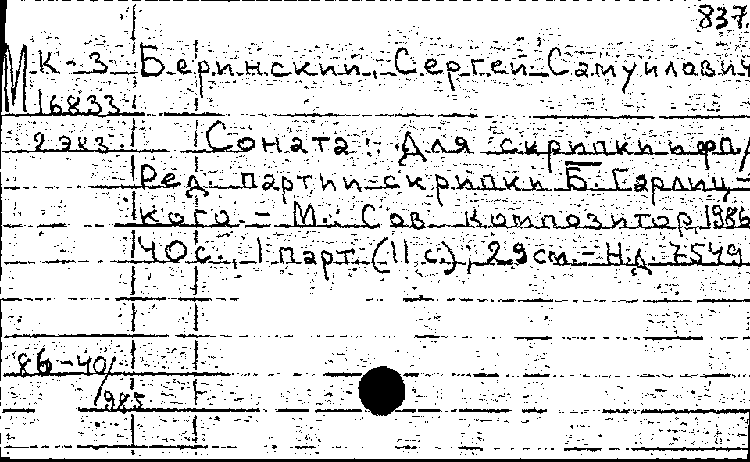 837
М К-3 Беринский, Сергей Самуилович
16833
2 экз. Соната: Для скрипки и фп/
Ред. партии скрипки Б. Гарлиц-
кого. - М.: Сов. композитор, 1986
40 с., 1 парт. (11 с.); 29 см. - Н.д. 7549
86-40/
985